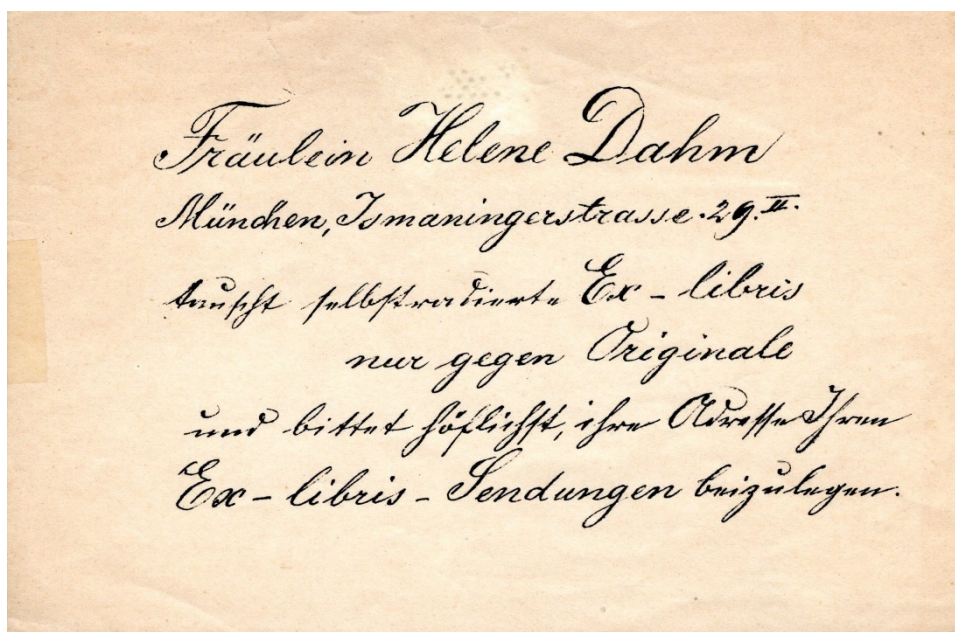 Fräulein Helene Dahm
München, Ismaningerstrasse. 29. II.
tauscht selbstradierte Ex-libris
nur gegen Originale
und bittet höflichst, ihre Adresse Ihren
Ex-libris-Sendungen beizulegen.